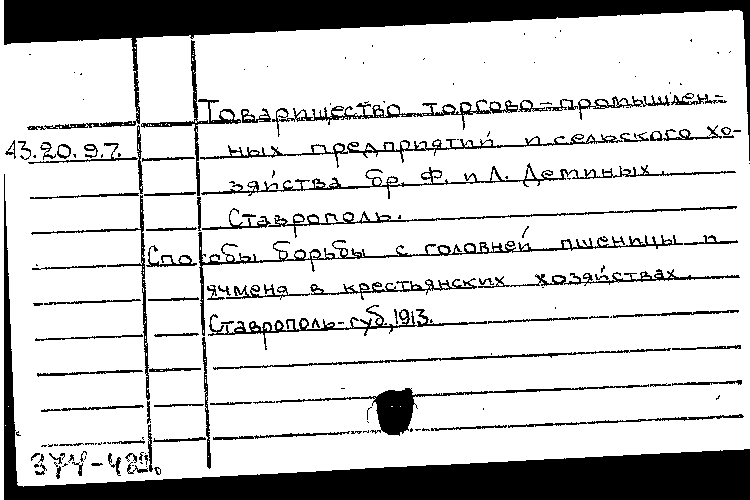 Товарищество торгово-промышлен-
43.20.9.7. ных предприятий и сельского хо-
зяйства бр. Ф. и Л. Деминых.
Ставрополь.
Способы борьбы с головней пшеницы и
ячменя в крестьянских хозяйствах.
Ставрополь-губ., 1913.